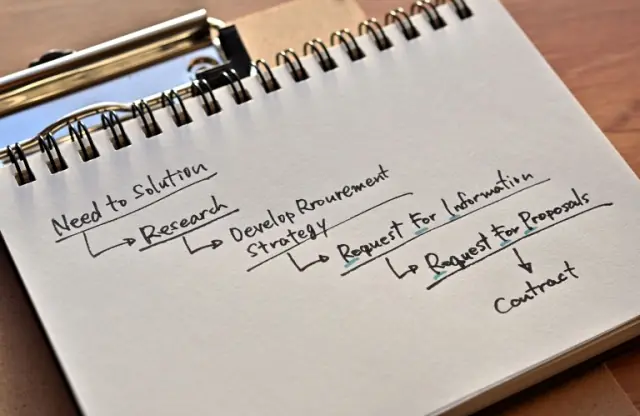 Need to Solution
Research
Develop Rrourement
Strategy
Request For Information
Request For Proposals
Contract